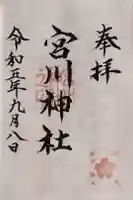 奉拝
宮川神社
令和五年九月八日